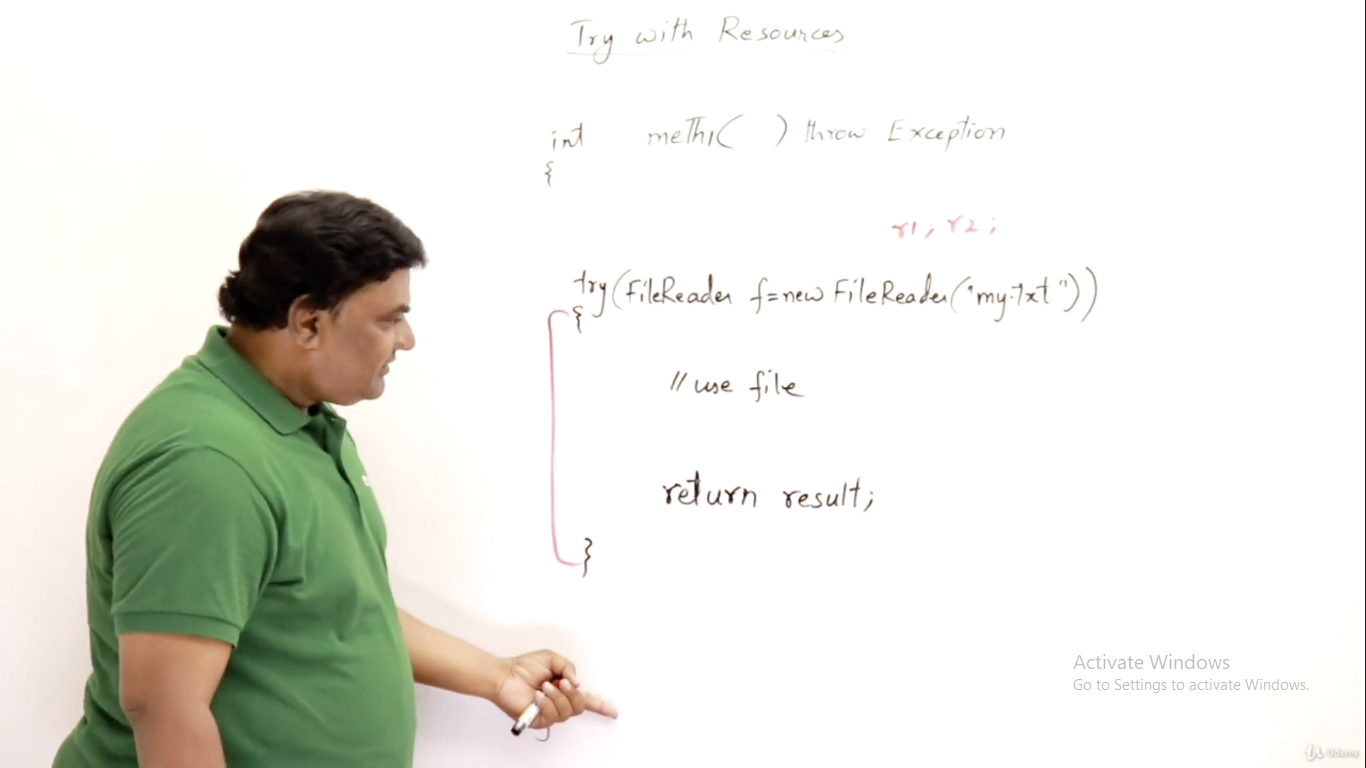 Try with Resources
int meth1( ) throw Exception
{
r1, r2;
try(FileReader f=new FileReader("my.txt"))
{
// use file
return result;
}
Activate Windows
Go to Settings to activate Windows.
Udemy